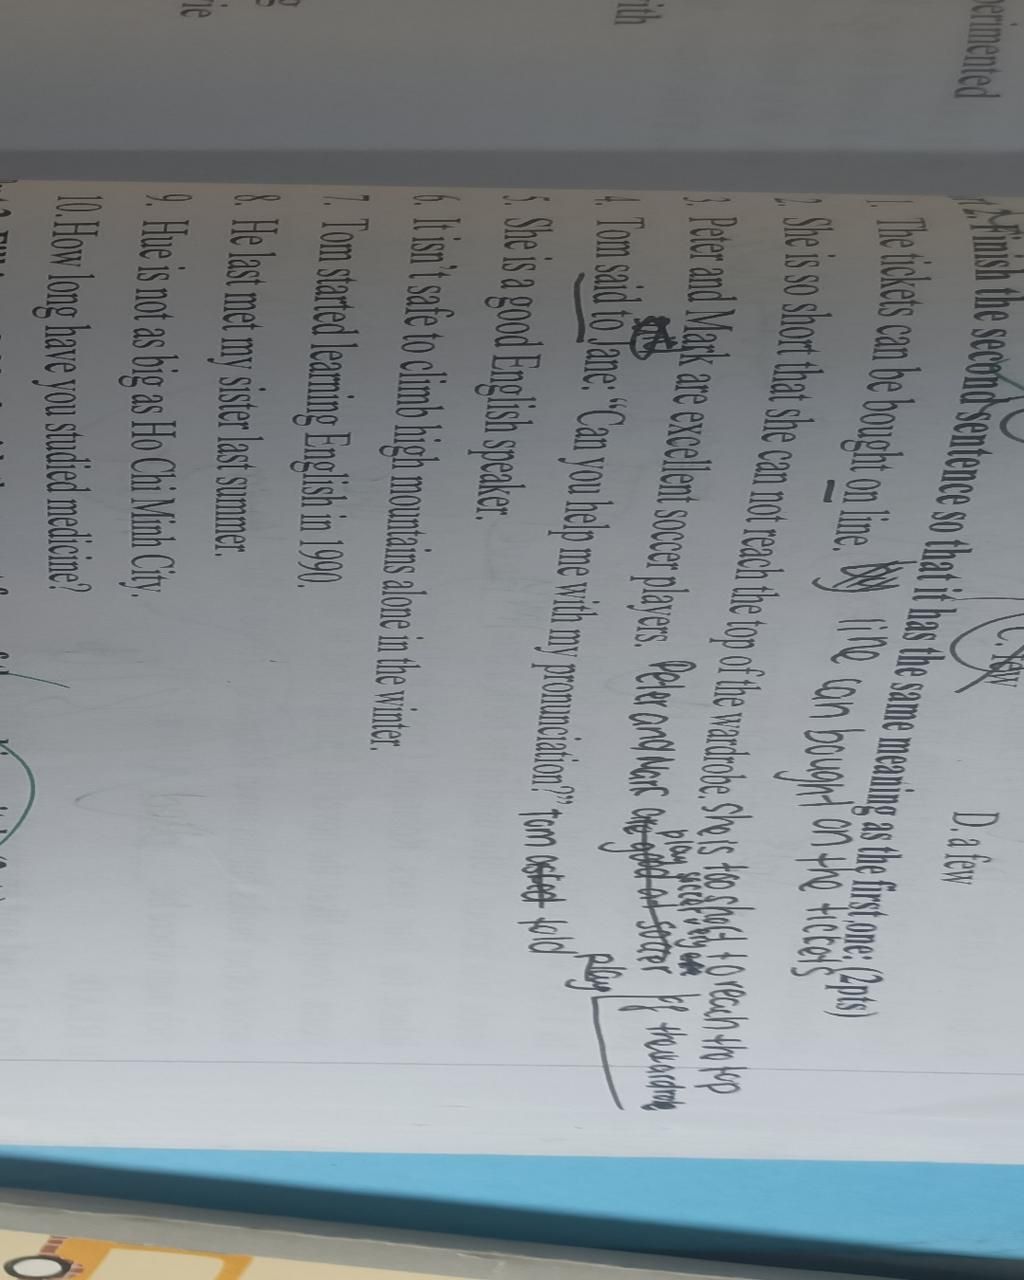 perimented
ith
D. a few
c. few
Finish the second sentence so that it has the same meaning as the first one: (2pts)
1. The tickets can be bought on line. line can bought on the tickets
2. She is so short that she can not reach the top of the wardrobe. She is too short to reach the top
of the wardrobe
3. Peter and Mark are excellent soccer players. Peter and Mark are good at soccer
play soccer
play
4. Tom said to Jane: “Can you help me with my pronunciation?” Tom asked told
5. She is a good English speaker.
6. It isn't safe to climb high mountains alone in the winter.
7. Tom started learning English in 1990.
8. He last met my sister last summer.
9. Hue is not as big as Ho Chi Minh City.
10. How long have you studied medicine?